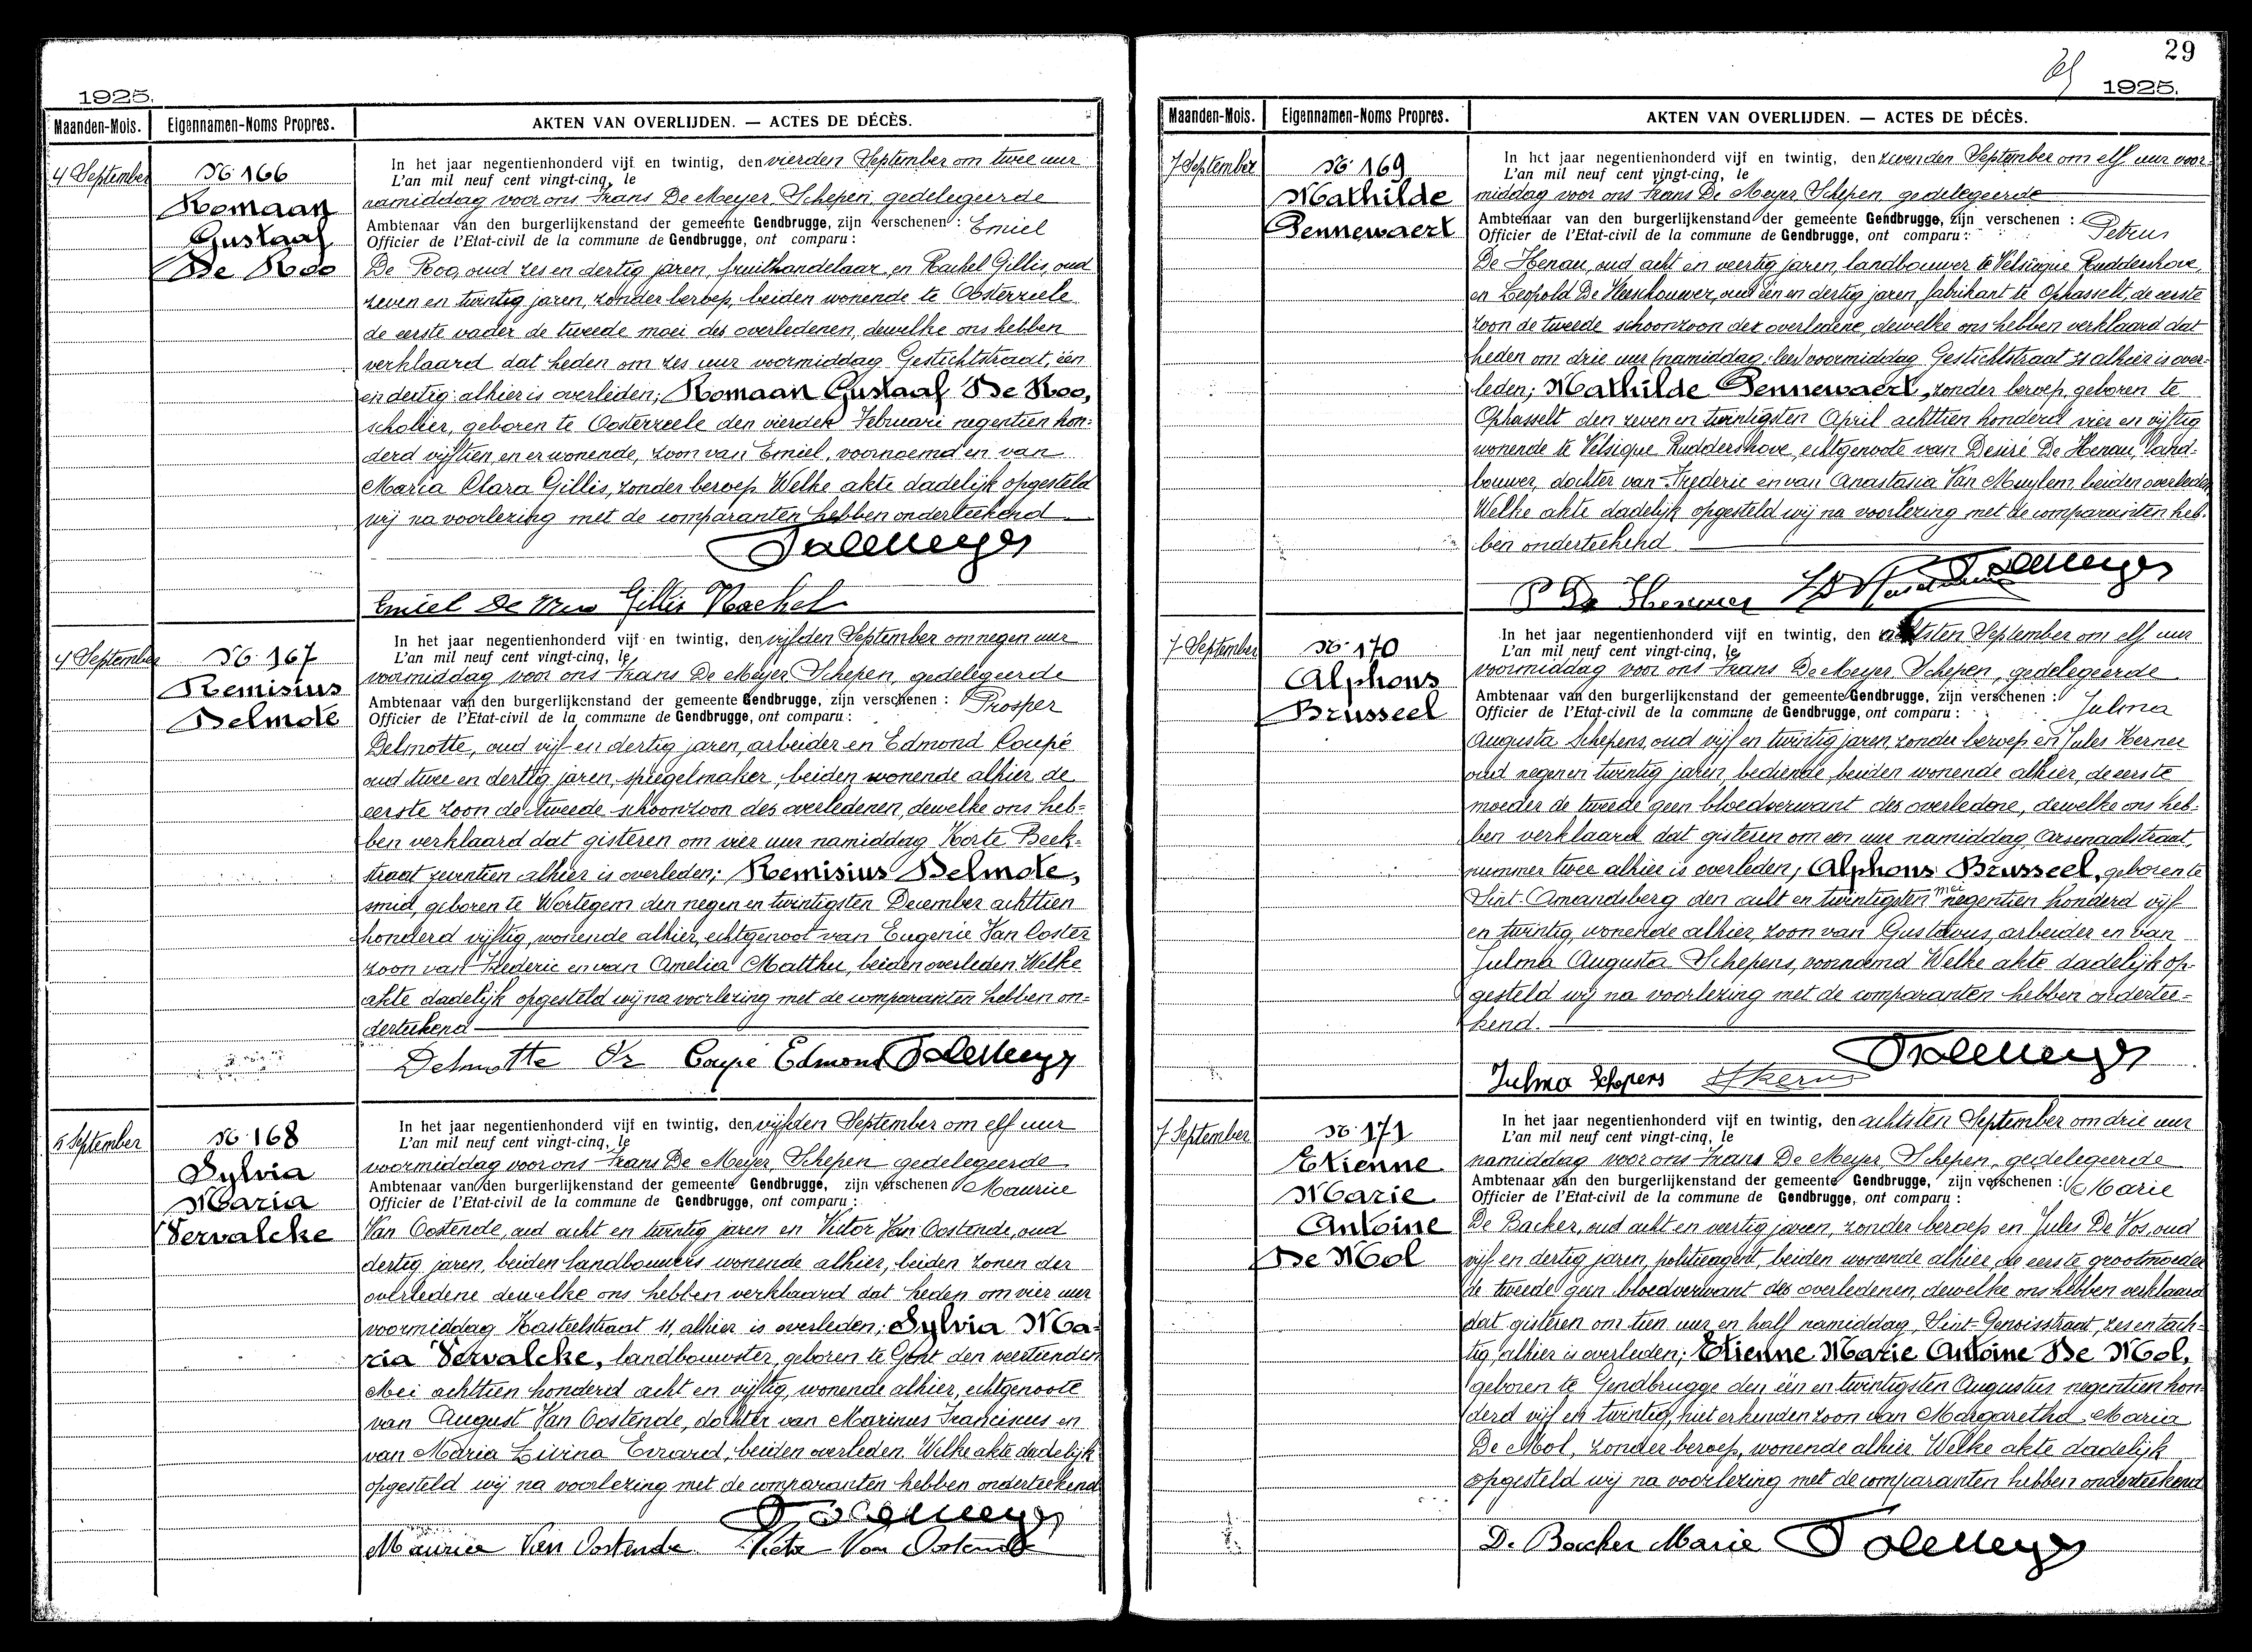 1925.
Maanden-Mois. Eigennamen-Noms Propres. AKTEN VAN OVERLIJDEN. — ACTES DE DÉCÈS.
4 September
No 166
Romaan
Gustaaf
De Roo
In het jaar negentienhonderd vijf en twintig, den vierden September om twee uur
L'an mil neuf cent vingt-cinq, le
namiddag voor ons Frans De Meyer Schepen, gedelegeerde
Ambtenaar van den burgerlijkenstand der gemeente Gendbrugge, zijn verschenen : Emiel
Officier de l'Etat-civil de la commune de Gendbrugge, ont comparu :
De Roo, oud zes en dertig jaren, fruithandelaar en Rachel Gillis, oud
zeven en twintig jaren, zonder beroep, beiden wonende te Oosterzeele
de eerste vader de tweede moei des overledenen, dewelke ons hebben
verklaard dat heden om zes uur voormiddag Gestichtstraat, één
en dertig alhier is overleden; Romaan Gustaaf De Roo,
scholier, geboren te Oosterzeele den vierden Februari negentien hon-
derd vijftien, en er wonende, zoon van Emiel, voornoemd en van
Maria Clara Gillis, zonder beroep. Welke akte dadelijk opgesteld
wij na voorlezing met de comparanten hebben onderteekend
F De Meyer
Emiel De Roo Gillis Rachel
4 September
No 167
Remisius
Delmote
In het jaar negentienhonderd vijf en twintig, den vijfden September om negen uur
L'an mil neuf cent vingt-cinq, le
voormiddag voor ons Frans De Meyer Schepen, gedelegeerde
Ambtenaar van den burgerlijkenstand der gemeente Gendbrugge, zijn verschenen : Prosper
Officier de l'Etat-civil de la commune de Gendbrugge, ont comparu :
Delmotte, oud vijf en dertig jaren, arbeider en Edmond Coupé
oud twee en dertig jaren, spiegelmaker, beiden wonende alhier de
eerste zoon de tweede schoonzoon des overledenen, dewelke ons heb-
ben verklaard dat gisteren om vier uur namiddag Korte Beek-
straat zeventien alhier is overleden; Remisius Delmote,
smid, geboren te Wortegem den negen en twintigsten December achttien
honderd vijftig, wonende alhier, echtgenoot van Eugenie Van Coster
zoon van Frederic en van Amelia Matthu, beiden overleden. Welke
akte dadelijk opgesteld wij na voorlezing met de comparanten hebben on-
derteekend
Delmotte Pr Coupé Edmond F De Meyer
5 September
No 168
Sylvia
Maria
Vervalcke
In het jaar negentienhonderd vijf en twintig, den vijfden September om elf uur
L'an mil neuf cent vingt-cinq, le
voormiddag voor ons Frans De Meyer, Schepen gedelegeerde
Ambtenaar van den burgerlijkenstand der gemeente Gendbrugge, zijn verschenen Maurice
Officier de l'Etat-civil de la commune de Gendbrugge, ont comparu :
Van Oostende, oud acht en twintig jaren en Victor Van Oostende, oud
dertig jaren, beiden landbouwers wonende alhier, beiden zonen der
overledene dewelke ons hebben verklaard dat heden om vier uur
voormiddag Kasteelstraat 11, alhier is overleden; Sylvia Ma-
ria Vervalcke, landbouwster, geboren te Gent den veertienden
Mei achttien honderd acht en vijftig, wonende alhier, echtgenoote
van August Van Oostende, dochter van Marinus Franciscus en
van Maria Livina Evrard, beiden overleden. Welke akte dadelijk
opgesteld wij na voorlezing met de comparanten hebben onderteekend
F De Meyer
Maurice Van Oostende Victor Van Oostende
29
1925.
Maanden-Mois. Eigennamen-Noms Propres. AKTEN VAN OVERLIJDEN. — ACTES DE DÉCÈS.
7 September
No 169
Mathilde
Pennewaert
In het jaar negentienhonderd vijf en twintig, den zevenden September om elf uur voor-
L'an mil neuf cent vingt-cinq, le
middag voor ons Frans De Meyer Schepen gedelegeerde
Ambtenaar van den burgerlijkenstand der gemeente Gendbrugge, zijn verschenen : Petrus
Officier de l'Etat-civil de la commune de Gendbrugge, ont comparu :
De Henau, oud acht en veertig jaren, landbouwer te Velsique Ruddershove,
en Leopold De Kerschouwer, oud één en dertig jaren fabrikant te Ophasselt, de eerste
zoon de tweede schoonzoon der overledene, dewelke ons hebben verklaard dat
heden om drie uur (namiddag, lees) voormiddag Gestichtstraat 31 alhier is over-
leden; Mathilde Pennewaert, zonder beroep, geboren te
Ophasselt den zeven en twintigsten April achttien honderd vier en vijftig
wonende te Velsique Ruddershove, echtgenoote van Desiré De Henau, land-
bouwer, dochter van Frederic en van Anastasia Van Muylem, beiden overleden
Welke akte dadelijk opgesteld wij na voorlezing met de comparanten heb-
ben onderteekend
F De Meyer
7 September
No 170
Alphons
Brusseel
In het jaar negentienhonderd vijf en twintig, den achtsten September om elf uur
L'an mil neuf cent vingt-cinq, le
voormiddag voor ons Frans De Meyer Schepen, gedelegeerde
Ambtenaar van den burgerlijkenstand der gemeente Gendbrugge, zijn verschenen : Julma
Officier de l'Etat-civil de la commune de Gendbrugge, ont comparu :
Augusta Schepens, oud vijf en twintig jaren, zonder beroep en Jules Kerner
oud negen en twintig jaren, bediende, beiden wonende alhier, de eerste
moeder de tweede geen bloedverwant des overledene, dewelke ons heb-
ben verklaard dat gisteren om een uur namiddag Arsenaalstraat,
nummer twee alhier is overleden; Alphons Brusseel, geboren te
Sint-Amandsberg den acht en twintigsten mei negentien honderd vijf
en twintig, wonende alhier, zoon van Gustavus, arbeider en van
Julma Augusta Schepens, voornoemd Welke akte dadelijk op-
gesteld wij na voorlezing met de comparanten hebben ondertee-
kend.
F De Meyer
Julma Schepens
7 September
No 171
Etienne
Marie
Antoine
De Mol
In het jaar negentienhonderd vijf en twintig, den achtsten September om drie uur
L'an mil neuf cent vingt-cinq, le
namiddag voor ons Frans De Meyer, Schepen, gedelegeerde
Ambtenaar van den burgerlijkenstand der gemeente Gendbrugge, zijn verschenen : Marie
Officier de l'Etat-civil de la commune de Gendbrugge, ont comparu :
De Backer, oud acht en veertig jaren, zonder beroep en Jules De Vos, oud
vijf en dertig jaren, politieagent, beiden wonende alhier, de eerste grootmoeder
de tweede geen bloedverwant des overledenen, dewelke ons hebben verklaard
dat gisteren om tien uur en half namiddag, Sint-Genoisstraat, zes en tach-
tig, alhier is overleden; Etienne Marie Antoine De Mol,
geboren te Gendbrugge den één en twintigsten Augustus negentien hon-
derd vijf en twintig, niet erkenden zoon van Margaretha Maria
De Mol, zonder beroep, wonende alhier. Welke akte dadelijk
opgesteld wij na voorlezing met de comparanten hebben onderteekend
De Backer Marie F De Meyer